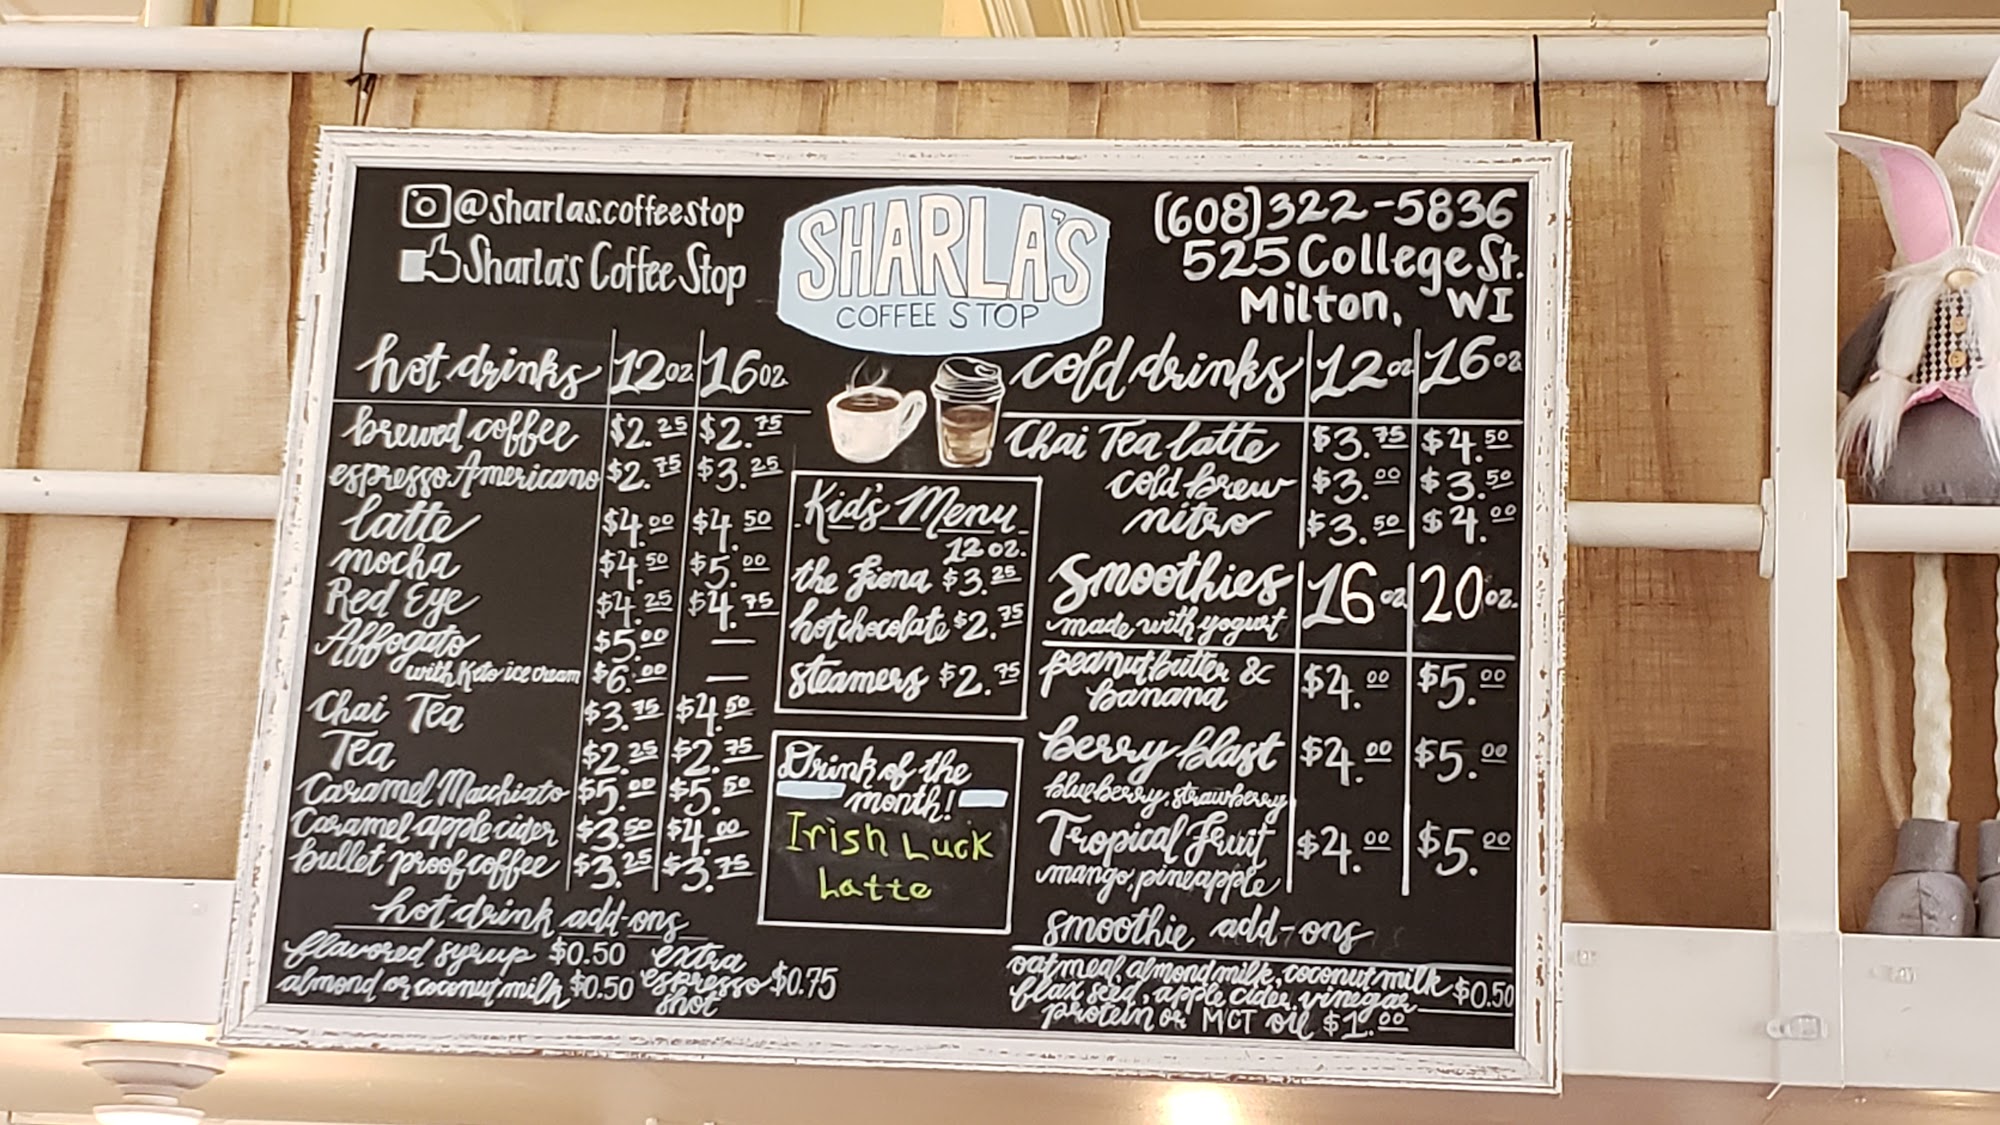 @sharlas.coffeestop
Sharla's Coffee Stop
SHARLA'S
COFFEE STOP
(608)322-5836
525 College St.
Milton, WI
hot drinks 12oz 16oz
brewed coffee $2.25 $2.75
espresso Americano $2.75 $3.25
latte $4.00 $4.50
mocha $4.50 $5.00
Red Eye $4.25 $4.75
Affogato $5.00 —
with Keto ice cream $6.00 —
Chai Tea $3.75 $4.50
Tea $2.25 $2.75
Caramel Macchiato $5.00 $5.50
Caramel apple cider $3.50 $4.00
bullet proof coffee $3.25 $3.75
hot drink add-ons
flavored syrup $0.50
almond or coconut milk $0.50
extra
espresso $0.75
shot
Kid's Menu
12oz.
the Fiona $3.25
hot chocolate $2.75
steamers $2.75
Drink of the
month!
Irish Luck
Latte
cold drinks 12oz 16oz
Chai Tea latte $3.75 $4.50
cold brew $3.00 $3.50
nitro $3.50 $4.00
Smoothies 16oz 20oz.
made with yogurt
peanut butter & $4.00 $5.00
banana
berry blast $4.00 $5.00
blueberry, strawberry
Tropical Fruit $4.00 $5.00
mango, pineapple
smoothie add-ons
oatmeal, almond milk, coconut milk
flax seed, apple cider vinegar $0.50
protein or MCT oil $1.00